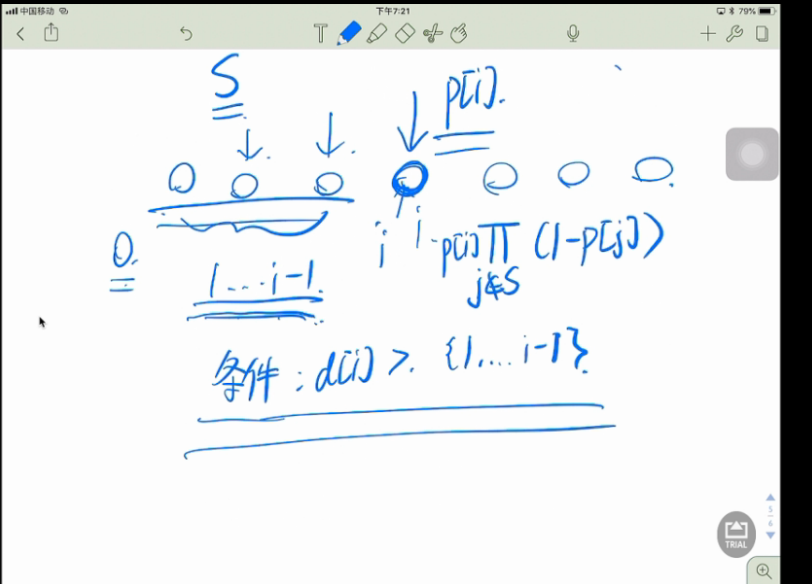 中国移动 下午7:21 79%
T
S
p[i].
0.
i
1-p[i]∏(1-p[j])
j∉S
1...i-1.
条件:d[i]>.{1,...i-1}.
5
6
TRIAL